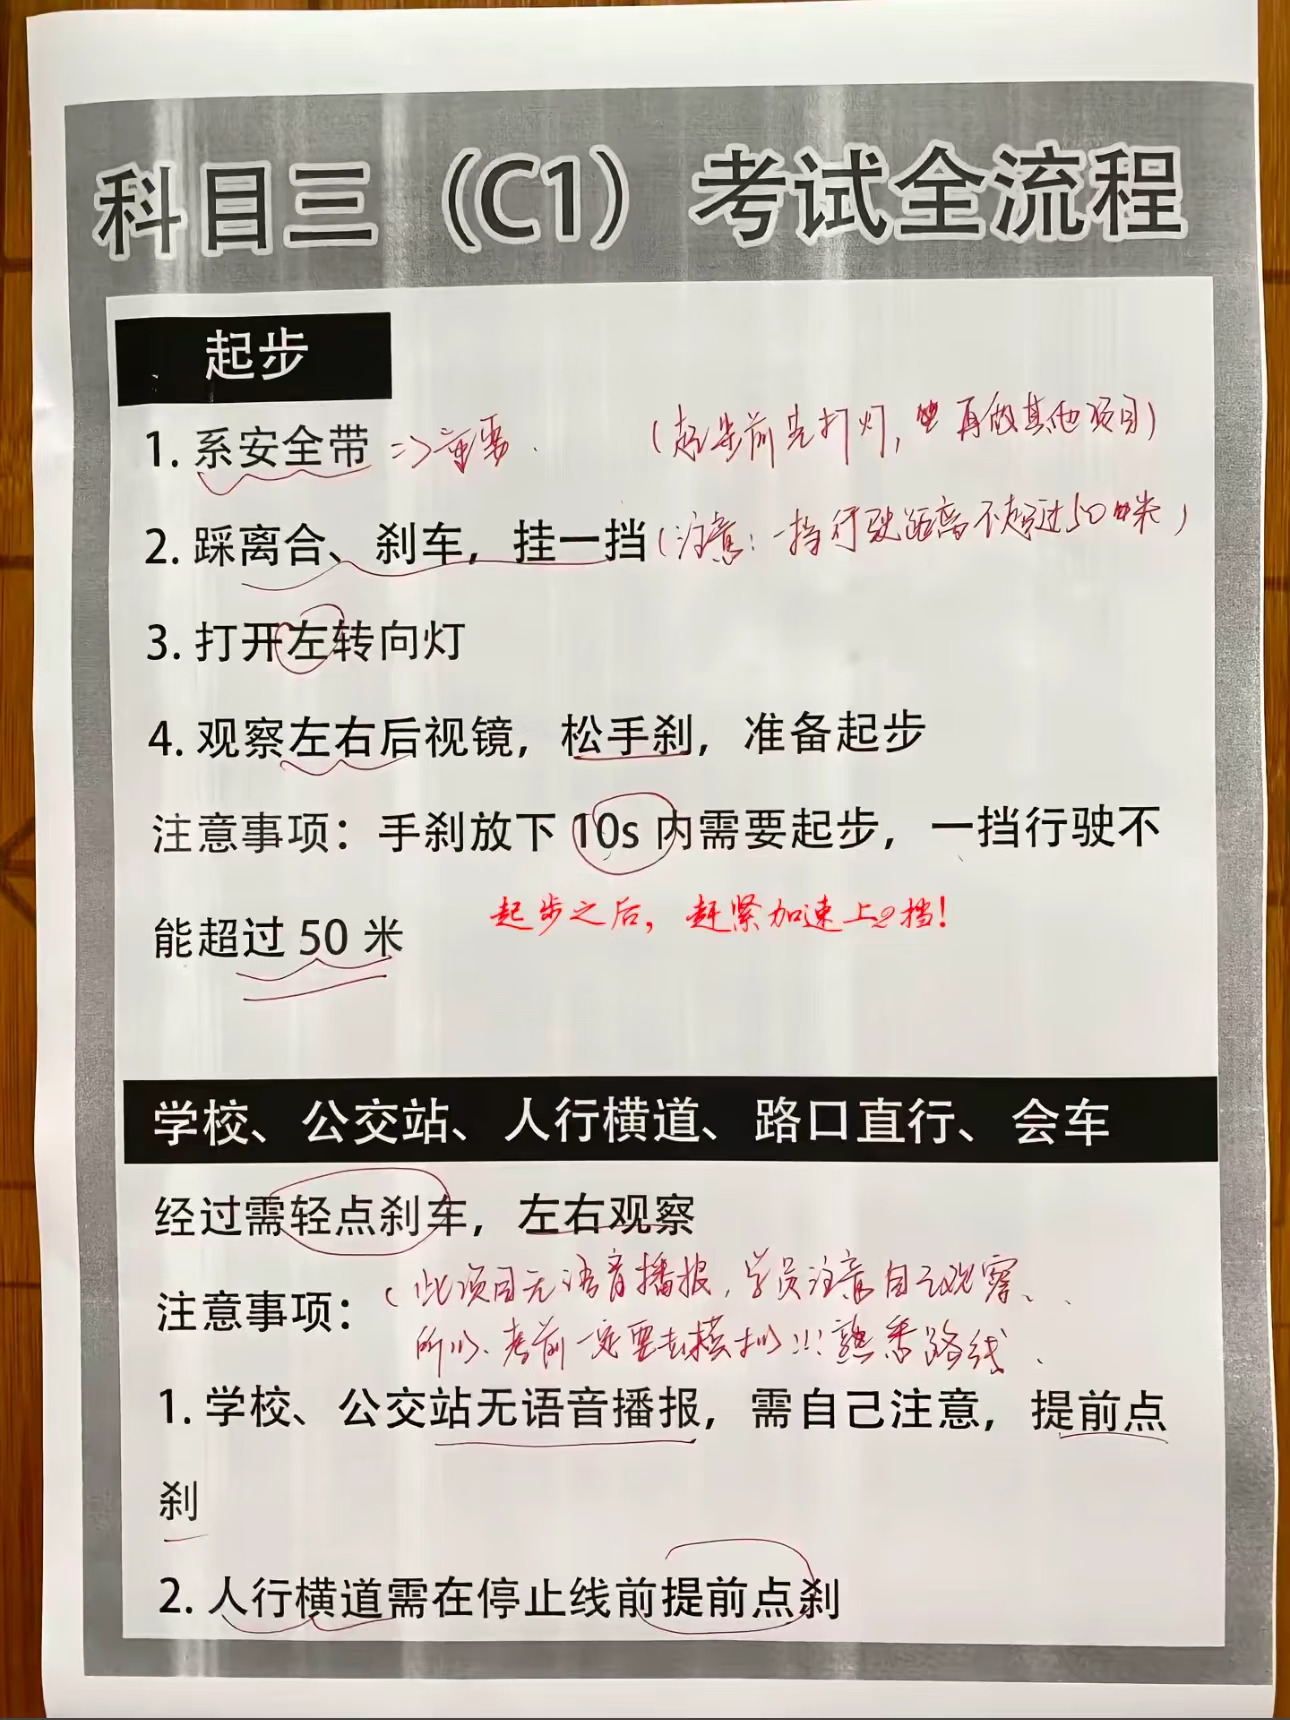 科目三（C1）考试全流程
起步
1. 系安全带 => 重要.
（起步前先打灯，再做其他项目）
2. 踩离合、刹车，挂一挡（注意：一挡行驶距离不超过50米）
3. 打开左转向灯
4. 观察左右后视镜，松手刹，准备起步
注意事项：手刹放下 10s 内需要起步，一挡行驶不
能超过 50 米
起步之后，赶紧加速上2挡！
学校、公交站、人行横道、路口直行、会车
经过需轻点刹车，左右观察
（此项目无语音播报，学员注意自己观察、
注意事项：
所以、考前一定要去模拟!!!熟悉路线、
1. 学校、公交站无语音播报，需自己注意，提前点
刹
2. 人行横道需在停止线前提前点刹